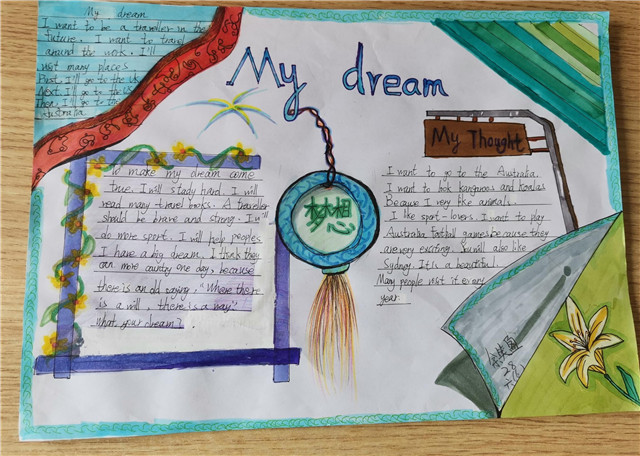 My dream
I want to be a traveller in the
future. I want to travel
around the work. I'll
visit many places
First, I'll go to the UK
Next, I'll go to the US
Then, I'll go to the
Australia.
My dream
To make my dream come
true. I will stady hard. I will
read many travel books. A traveller
should be brave and strong. I'll
do more sport. I will help peoples
I have a big dream. I think they
can more country one day. because
there is an old saying, "Where there
is a will, there is a way"
what your dream?
梦想
My Thought
I want to go to the Australia.
I want to look kangroos and Koalas
Because I very like animals.
I like sport-lovers. I want to play
Australia football games because they
are very exciting. You will also like
Sydney. It is a beautiful
Many people visit it every
year.